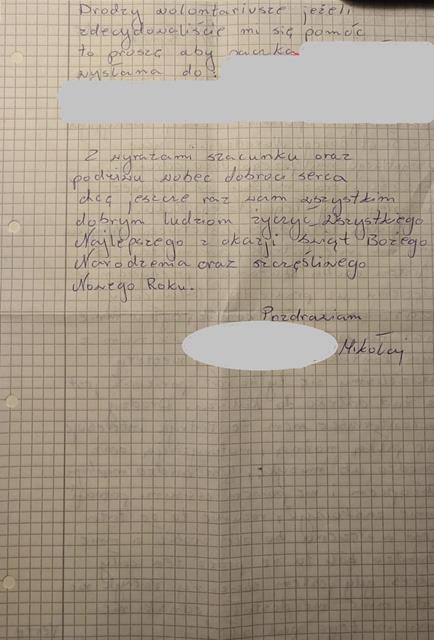 Drodzy wolontariusze jeżeli
zdecydowaliście mi się pomóc
to proszę aby paczka
wysłana do:
Z wyrazami szacunku oraz
podziwu wobec dobroci serca
chcę jeszcze raz wam wszystkim
dobrym ludziom życzyć wszystkiego
Najlepszego z okazji Świąt Bożego
Narodzenia oraz szczęśliwego
Nowego Roku.
Pozdrawiam
Mikołaj